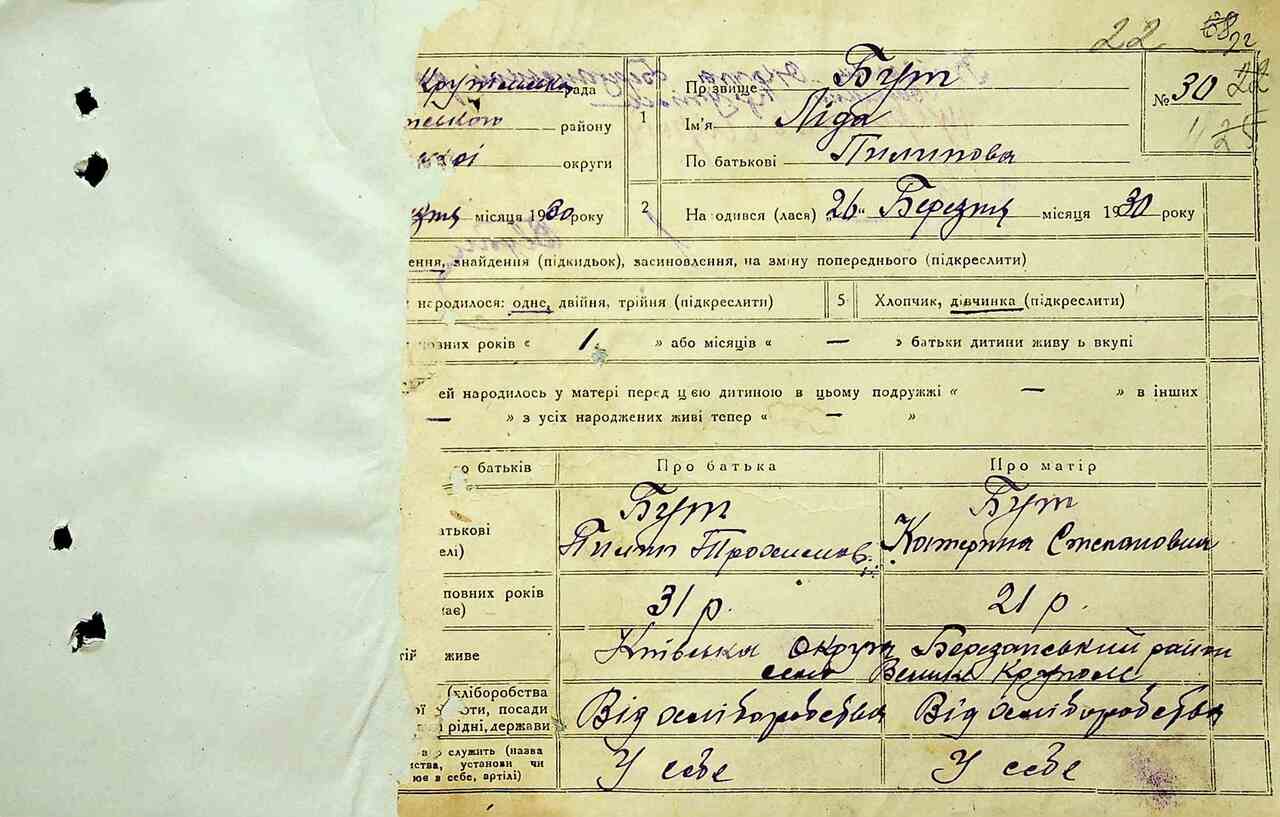 22 68
рада
Прізвище Бут
№ 30
22
районy
1
Ім'я Ліда
25
округи
По батькові Пилипова
місяця 1930 року
2
Народився (лася) „26“ Березня місяця 1930 року
ення, знайдення (підкидьок), засиновлення, на зміну попереднього (підкреслити)
народилося: одне, двійня, трійня (підкреслити)
5
Хлопчик, дівчинка (підкреслити)
овних років « 1. » або місяців « — » батьки дитини живуть вкупі
ей народилось у матері перед цією дитиною в цьому подружжі « — » в інших
— » з усіх народжених живі тепер « — »
о батьків
Про батька
Про матір
атькові
елі)
Бут
Пилип Трохимов.
Бут
Катерина Степановна
повних років
ає)
31 р.
21 р.
живе
Київська округа Березанський район
село Велика Крупол
хліборобства
оти, посади
рідні, держави
Від хліборобства
Від хліборобства
служить (назва
ства, установи чи
ює в себе, артілі)
У себе
У себе